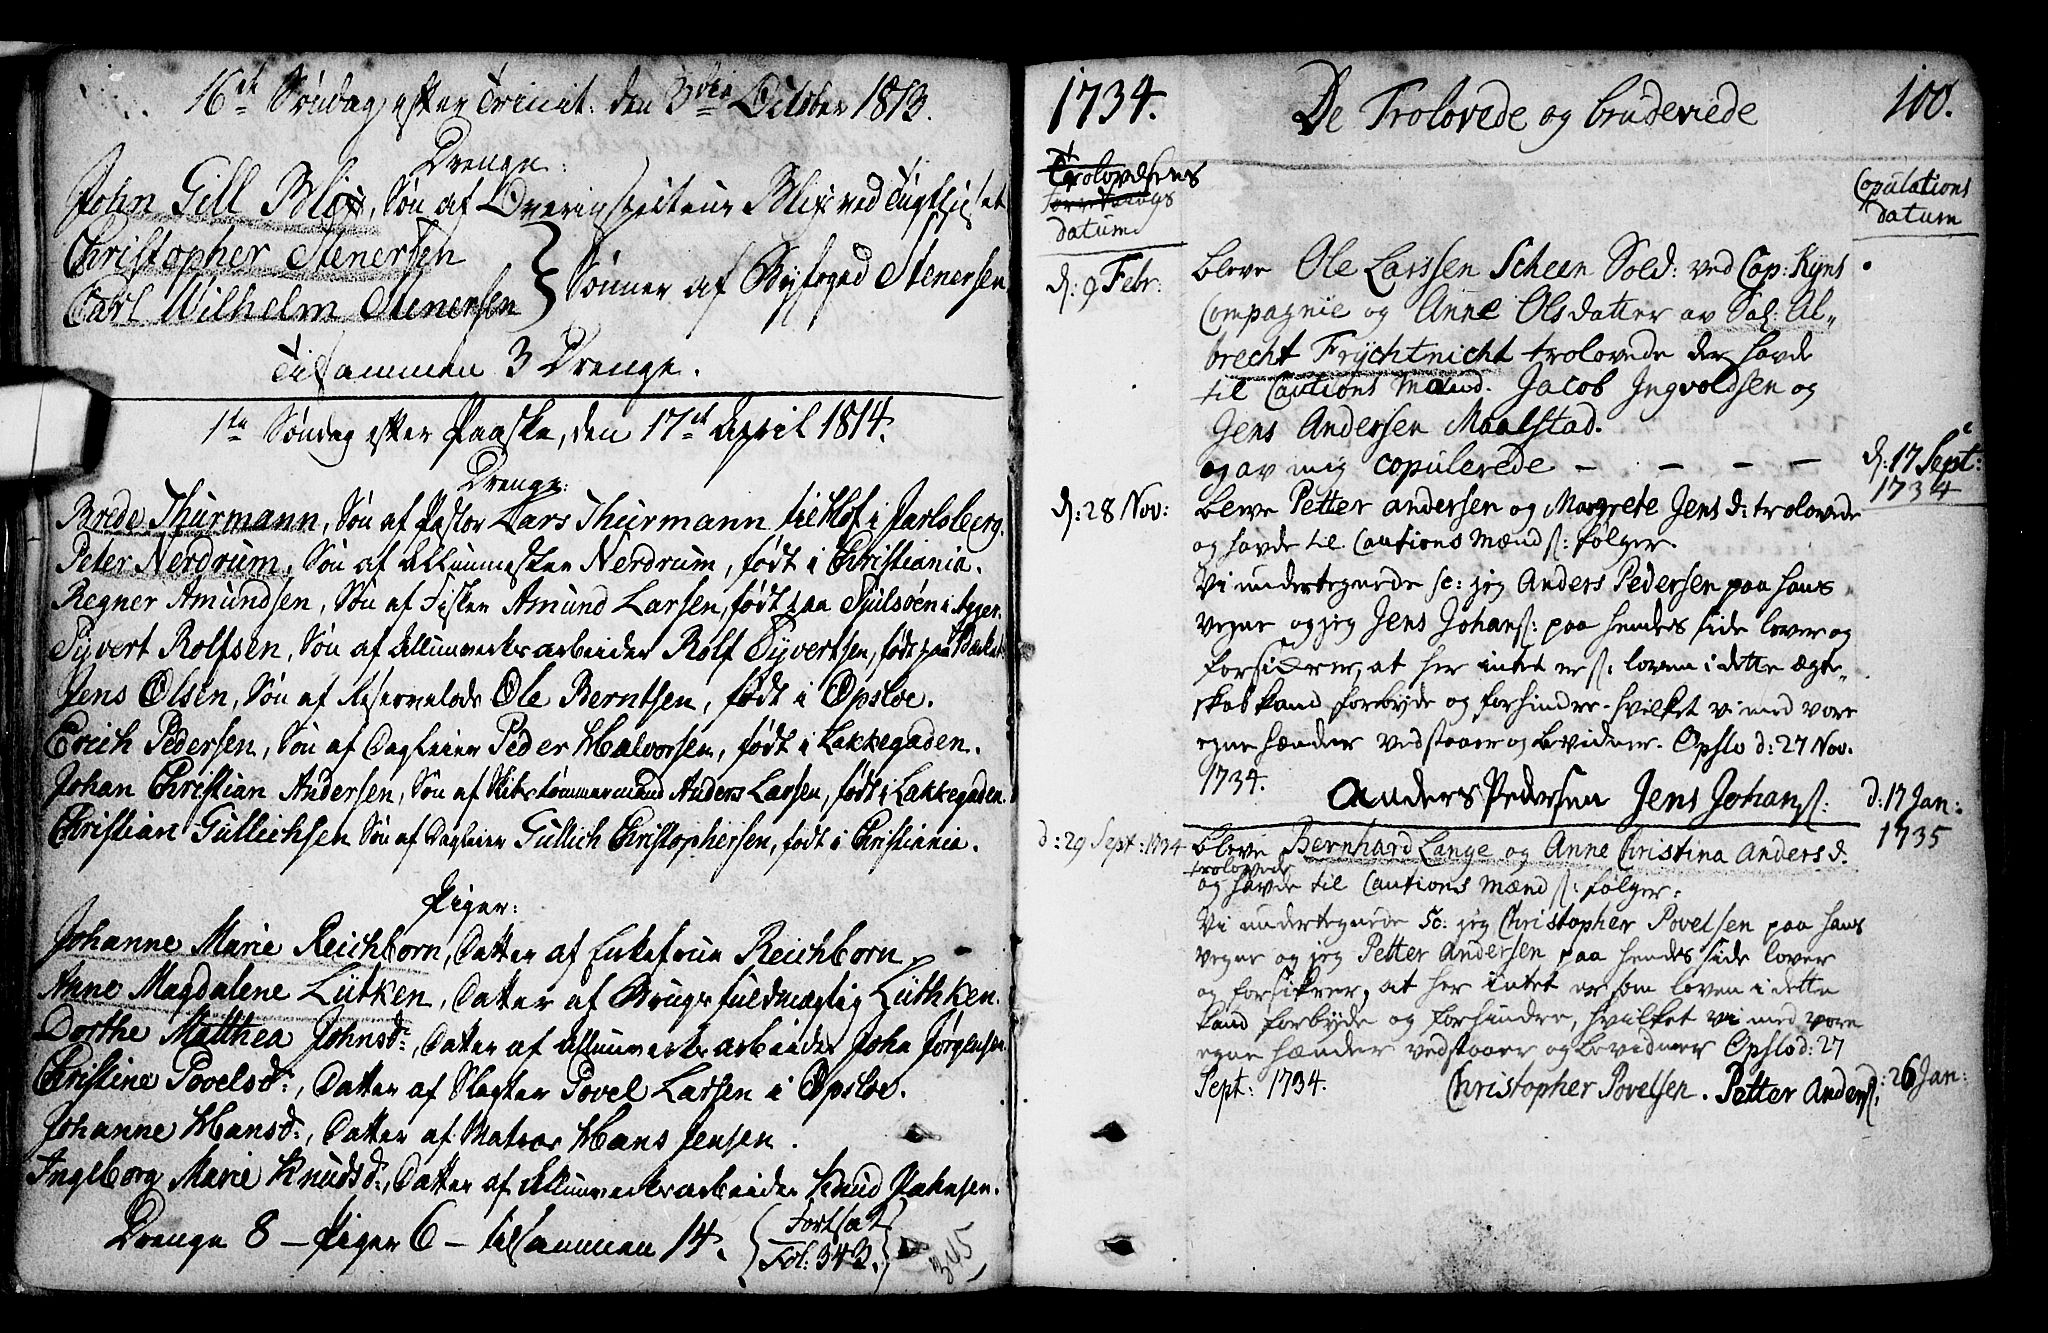 16de Søndag efter Trinit: den 3die October 1813.
Drenge:
John Gill Blix, Søn af Overinspecteur Blix ved Tugthuset
Christopher Stenersen
Carl Wilhelm Stenersen } Sønner af Byfoged Stenersen
Tilsammen 3 Drenge.
1te Søndag efter Paaske, den 17de April 1814.
Drenge:
Brede Thurmann, Søn af Pastor Lars Thurmann til Hof i Jarlsberg.
Peter Nerdrum, Søn af Allunmester Nerdrum, født i Christiania.
Regner Amundsen, Søn af Fisker Amund Larsen, født paa i Agger.
Syvert Rolfsen, Søn af Allunverksarbeider Rolf Syvertsen, født paa
Jens Olsen, Søn af Ole Berntsen, født i Opsloe.
Erich Pedersen, Søn af Dagleier Peder Halvorsen, født i Lakkegaden.
Johan Christian Andersen, Søn af Skibstømmermand Anders Larsen, født i Lakkegaden.
Christian Gullichsen Søn af Dagleier Gullich Christophersen, født i Christiania.
Piger:
Johanne Marie Reichborn, Datter af Enkefrue Reichborn.
Anne Magdalene Lütken, Datter af Brugsfuldmægtig Lüthken.
Dorthe Matthea Johnsd:, Datter af Allunverksarbeider John Jørgensen
Christine Povelsd:, Datter af Slagter Povel Larsen i Opsloe.
Johanne Hansd:, Datter af Matros Hans Jensen.
Ingeborg Marie Knudsd:, Datter af Allunverksarbeider Knud Johnsen.
Drenge 8 – Piger 6 – tilsammen 14. (Fortsat
Fol: 343.)
345
1734. De Trolovede og brudeviede 100.
Trolovelsens
datum
Copulations
datum
d: 9 Febr: bleve Ole Larssen Scheen Sold: ved Cap: Kyns
Compagnie og Anne Olsdatter av Sal: Al-
brecht Frÿchtnicht trolovede der havde
til Cautions Mænd. Jacob Ingvoldsen og
Jens Andersen Maalstad.
og av mig copulerede – – – – d: 17 Sept:
1734
d: 28 Nov: bleve Petter andersen og Margrete Jensd: trolovede
og havde til Cautions Mænd s: følger.
Vi undertegnede sc: jeg Anders Pedersen paa hans
vegne og jeg Jens Johans: paa hendes side lover og
forsikrer, at her intet er s: loven i dette ægte-
skab kand forbyde og forhindre. hvilket vi med vore
egne hænder vedstaaer og bevidner. Opslo d: 27 Nov.
1734.
Anders Pedersen Jens Johans: d: 17 Jan:
1735
d: 29 Sept: 1734 bleve Bernhard Lange og Anne Christina Andersd:
trolovede
og havde til Cautions Mænd s: følger:
Vi undertegnede Sc: jeg Christopher Povelsen paa hans
vegne og jeg Petter Andersen paa hendes side lover
og forsikrer, at her intet er som loven i dette
kand forbyde og forhindre, hvilket vi med vore
egne hænder vedstaaer og bevidner Opslo d: 27
Sept: 1734. Christopher Povelsen. Petter Anders: d: 26 Jan: